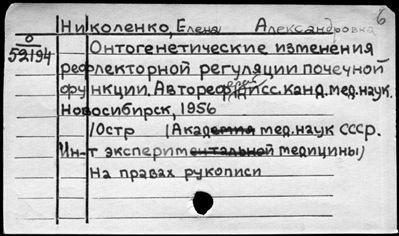 6
Николенко, Елена Александровна
0
52194
Онтогенетические изменения
рефлекторной регуляции почечной
функции. Автореферат дисс. канд. мед. наук.
Новосибирск, 1956
/Остр /Академия мед. наук СССР.
Ин-т экспериментальной медицины/
На правах рукописи